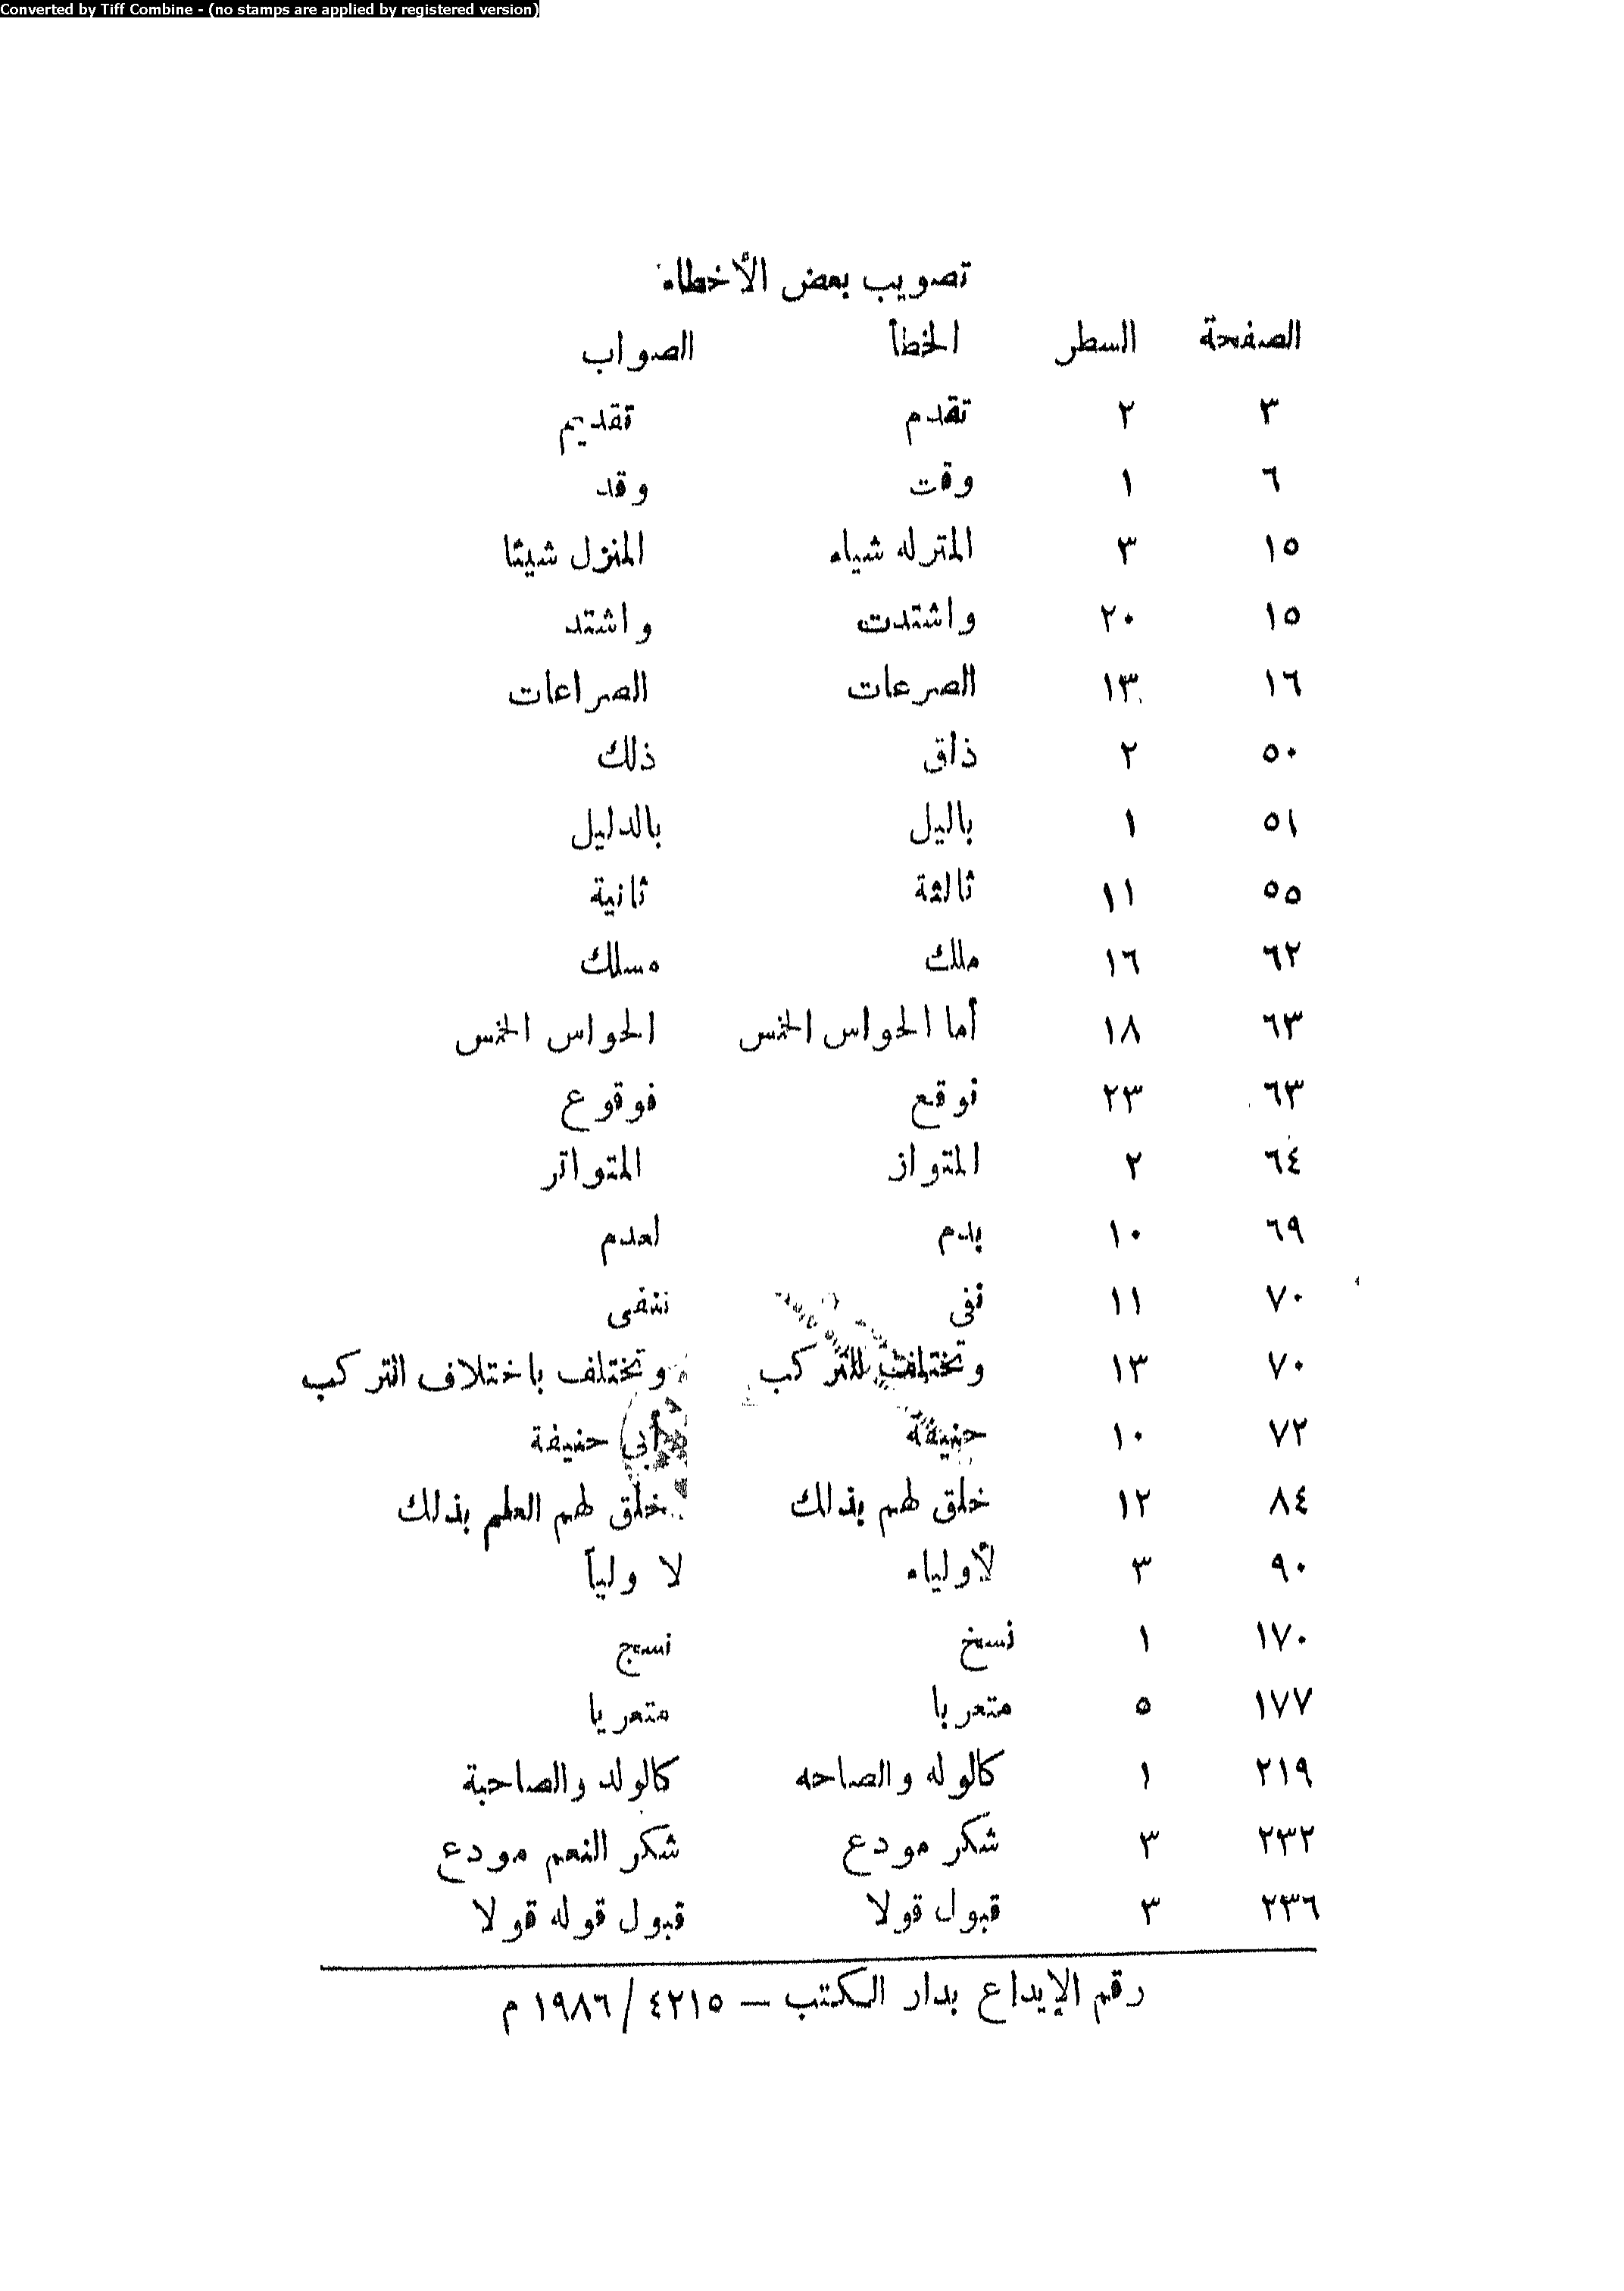 Converted by Tiff Combine - (no stamps are applied by registered version)
تصويب بعض الأخطاء
الصفحة السطر الخطأ الصواب
٣ ٢ تقدم تقديم
٦ ١ وقت وقد
١٥ ٣ المتزله شياء المنزل شيئا
١٥ ٢٠ واشتدت واشتد
١٦ ١٣ الصرعات الصراعات
٥٠ ٢ ذاق ذلك
٥١ ١ باليل بالدليل
٥٥ ١١ ثالثة ثانية
٦٢ ١٦ ملك مسلك
٦٣ ١٨ أما الحواس الخمس الحواس الخمس
٦٣ ٢٣ نوقع فوقوع
٦٤ ٢ المتواز المتواتر
٦٩ ١٠ بدم لعدم
٧٠ ١١ نفى ننفى
٧٠ ١٣ وتختلف للتركب وتختلف باختلاف التركب
٧٢ ١٠ حنيفة أبى حنيفة
٨٤ ١٢ خلق لهم بذلك خلق لهم العلم بذلك
٩٠ ٣ لأولياء لا ولياً
١٧٠ ١ نسخ نسج
١٧٧ ٥ متعربا متعريا
٢١٩ ١ كالوله والصاحه كالولد والصاحبة
٢٣٢ ٣ شكر مودع شكر النعم مودع
٢٣٦ ٣ قبول قولا قبول قوله قولا
رقم الإيداع بدار الكتب — ٤٢١٥ / ١٩٨٦ م